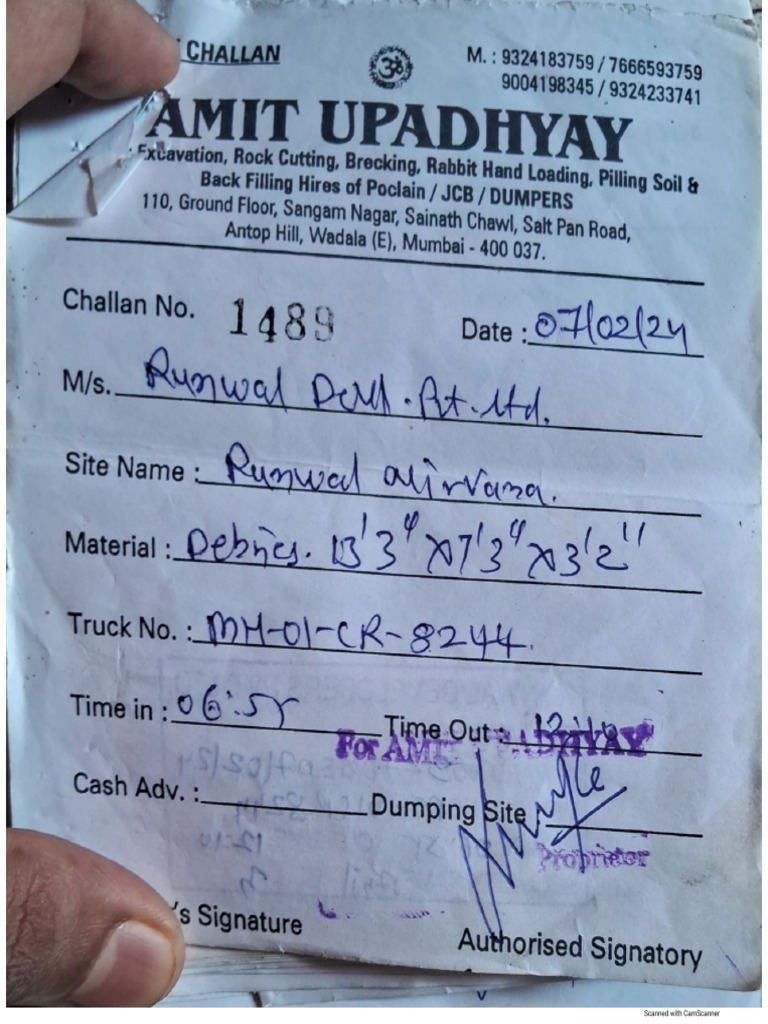 CHALLAN
M. : 9324183759 / 7666593759
9004198345 / 9324233741
AMIT UPADHYAY
Excavation, Rock Cutting, Brecking, Rabbit Hand Loading, Pilling Soil &
Back Filling Hires of Poclain / JCB / DUMPERS
110, Ground Floor, Sangam Nagar, Sainath Chawl, Salt Pan Road,
Antop Hill, Wadala (E), Mumbai - 400 037.
Challan No. 1489 Date : 07/02/24
M/s. Runwal Pvt. Ltd.
Site Name : Runwal Nirvana.
Material : Debries. 13'3" x 7'3" x 3'2"
Truck No. : MH-01-CR-8244.
Time in : 06:55 Time Out : 12:10
For AMIT UPADHYAY
Cash Adv. : Dumping Site
Proprietor
's Signature
Authorised Signatory
Scanned with CamScanner